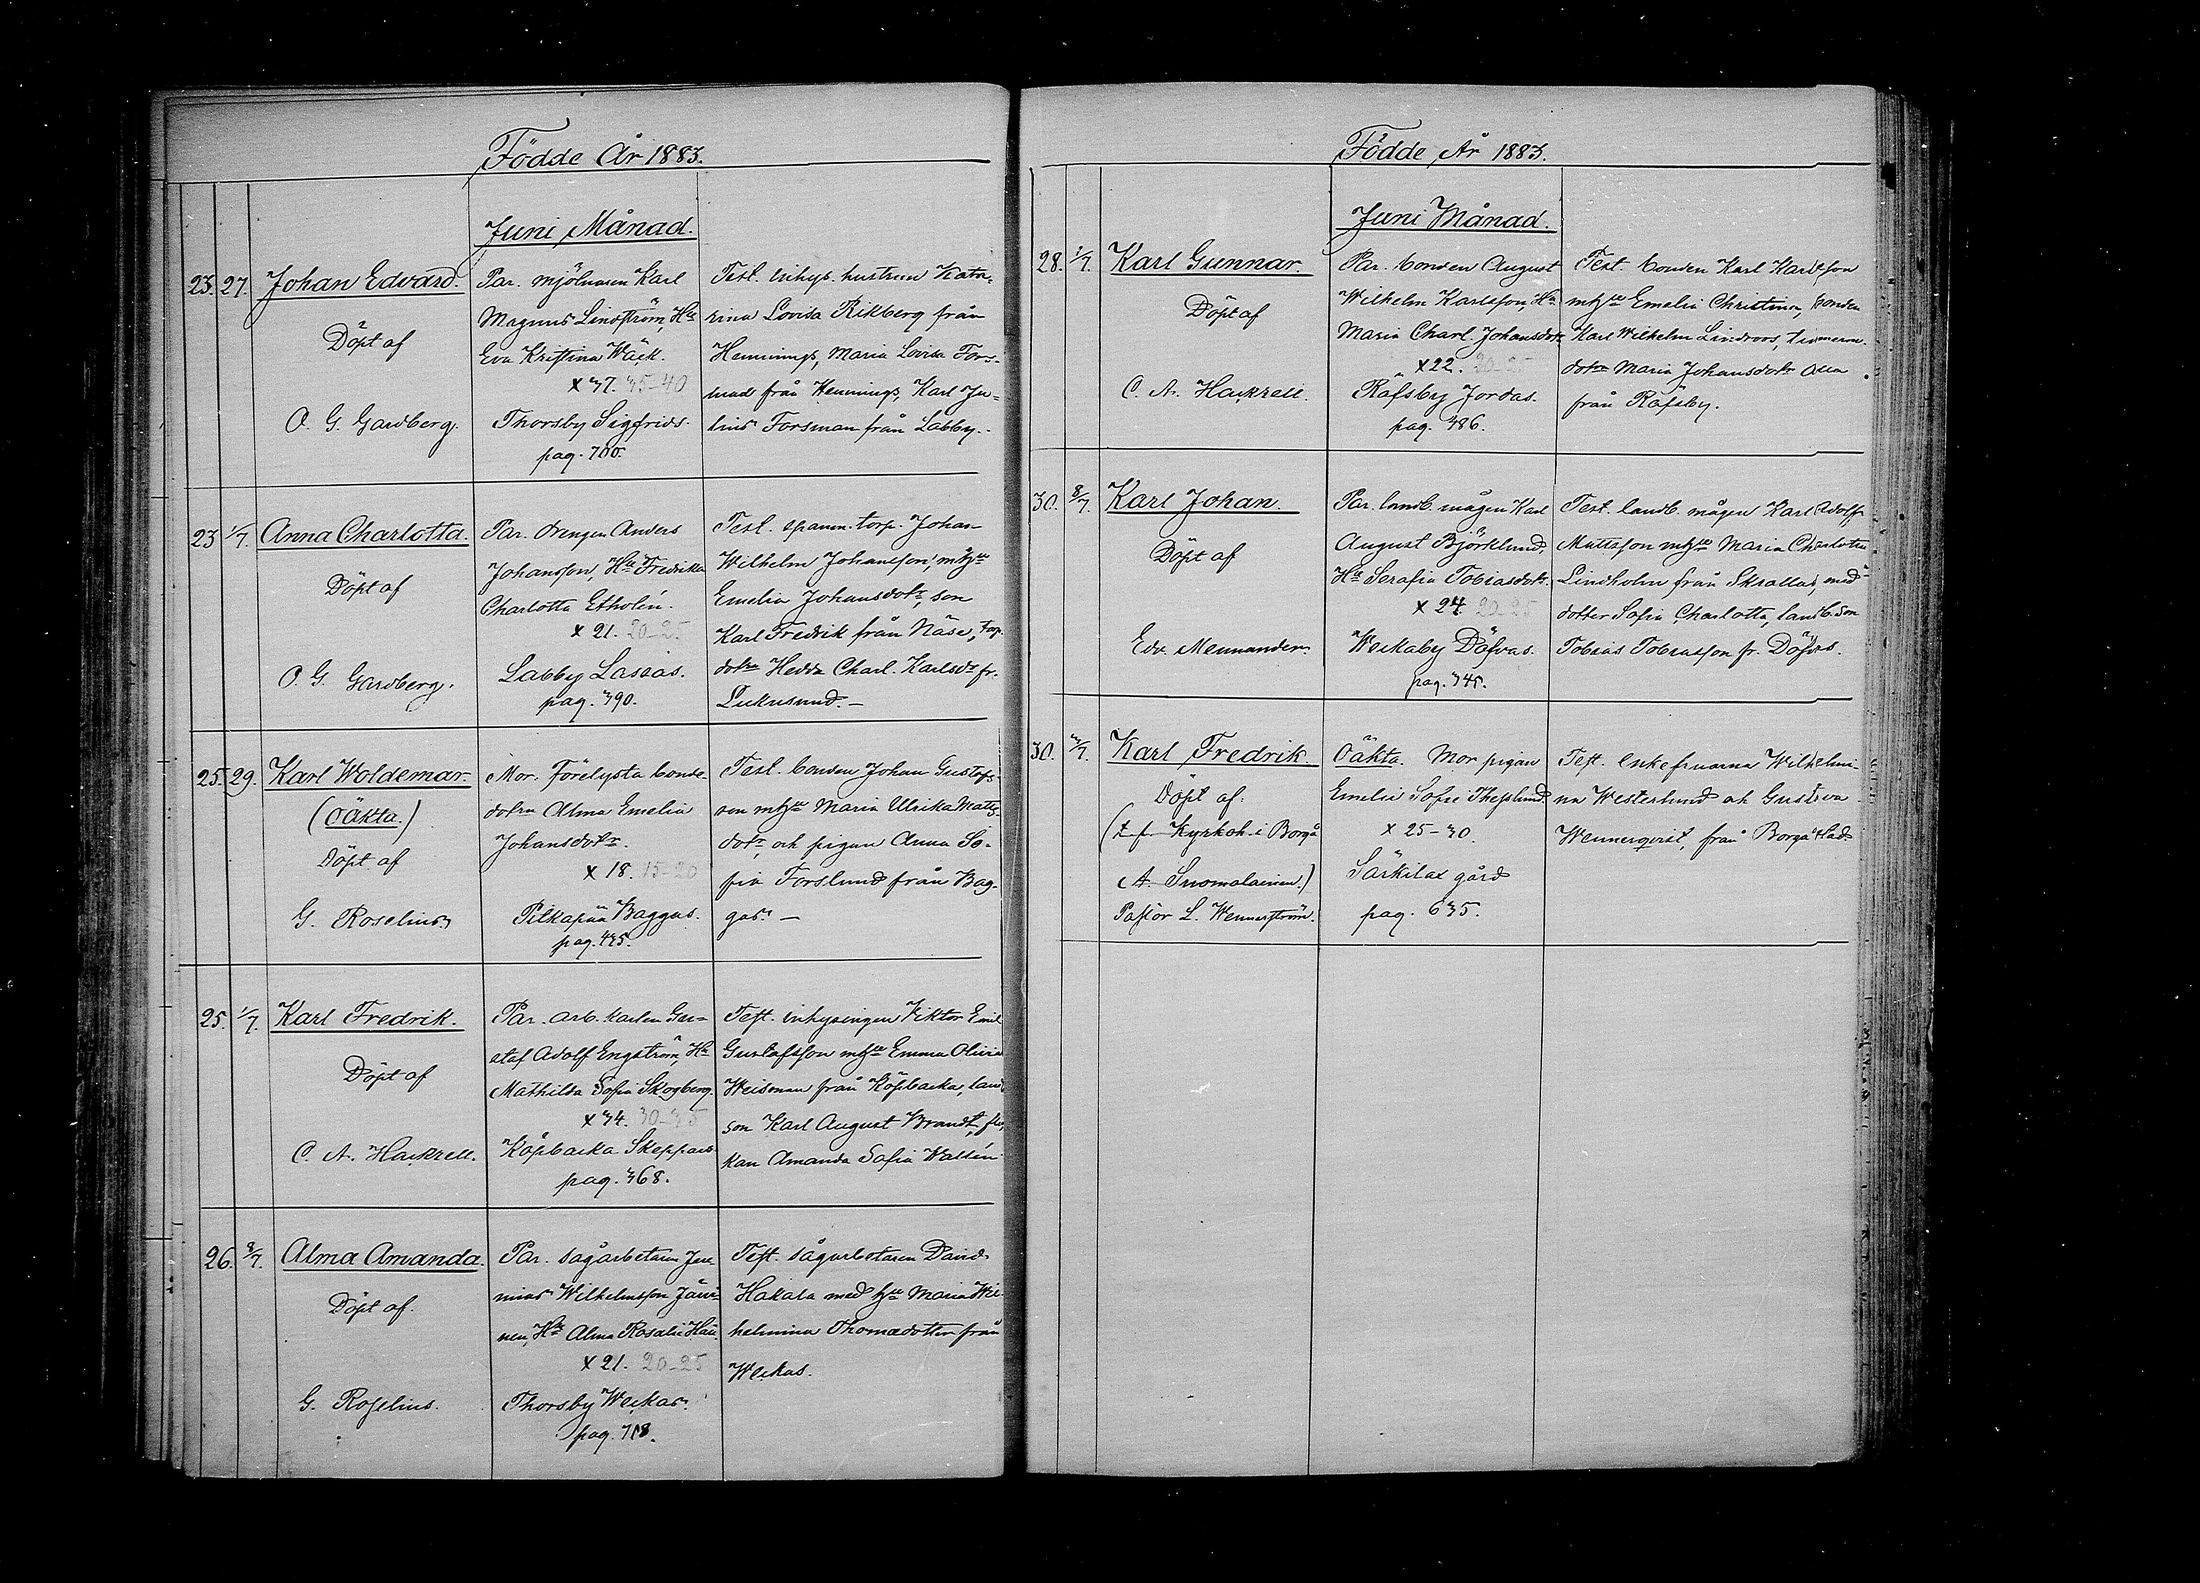 Födde År 1883.
Juni Månad.
23. 27. Johan Edvard.
Döpt af
O. G. Gardberg.
Par. mjölnaren Karl
Magnus Lindström, Hu
Eva Kristina Wäck.
x 37. 35-40
Thorsby Sigfrids.
pag. 700.
Test. inhys. hustrun Kata-
rina Lovisa Rikberg från
Hennings, Maria Lovisa Fors-
man från Hennings, Karl Ju-
lius Forsman från Labby.
23 1/7. Anna Charlotta.
Döpt af
O. G. Gardberg.
Par. drengen Anders
Johansson, Hu Fredrika
Charlotta Etholén.
x 21. 20-25
Labby Lassas.
pag. 390.
Test. spanm. torp. Johan
Wilhelm Johansson, m hu
Emelia Johansdotr, son
Karl Fredrik från Näse, torp.
dotrn Hedda Charl. Karlsdr fr.
25. 29. Karl Woldemar.
(Oäkta.)
Döpt af
G. Roselius.
Mor. Förelysta bonde-
dotrn Alma Emelia
Johansdotr.
x 18. 15-20
Pitkapää Baggas.
pag. 435.
Test. bonden Johan Gustafs-
son m hu Maria Ulrika Mats-
dotr, och pigan Anna So-
fia Forslund från Bag-
gas. -
25. 1/7. Karl Fredrik.
Döpt af
C. A. Hackzell.
Par. arb. karlen Gu-
staf Adolf Engström, Hu
Mathilda Sofia Skogberg.
x 34. 30-35
Köpbacka Skeppars
pag. 368.
Test. inhysingen Viktor Emil
Gustafsson m hu Emma Olivia
Weisman från Köpbacka, land
son Karl August Brandt, flic
kan Amanda Sofia Wallén
26. 8/7. Alma Amanda.
Döpt af.
G. Roselius.
Par. sågarbetaren Jere
mias Wilhelmsson Järvi-
nen, Hu Alma Rosalie
x 21. 20-25
Thorsby Weckas.
pag. 718.
Test. sågarbetaren David
Hakala med hu Maria Wil
helmina Thomædotter från
Weckas.
Födde År 1883.
Juni Månad.
28. 1/7. Karl Gunnar.
Döpt af
C. A. Hackzell.
Par. bonden August
Wilhelm Karlsson, Hu
Maria Charl. Johansdotr
x 22. 20-25
Räfsby Jordas.
pag. 386.
Test. bonden Karl Karlsson
m hu Emelia Christina, bonden
Karl Wilhelm Lindroos, timmerm.
dotrn Maria Johansdotr alla
från Räfsby.
30. 8/7. Karl Johan.
Döpt af
Edv. Mennander.
Par. landb. mågen Karl
August Björklund,
Hu Serafia Tobiasdotr.
x 24. 20-25
Weckaby Döfvas.
pag. 345.
Test. landb. mågen Karl Adolf
Mattsson m hu Maria Charlotta
Lindholm från Skrallas, med
dotter Sofia Charlotta, landb. son
Tobias Tobiasson fr. Döfvas.
30. 3/7. Karl Fredrik.
Döpt af.
(t. f. Kyrkoh. i Borgå
A. Suomalainen.)
Pastor L. Wennerström.
Oäkta. Mor pigan
Emelie Sofie Theslund.
x 25-30.
Särkilax gård
pag. 635.
Test. enkefruarna Wilhelmi-
na Westerlund och Gustava
Wennerqvist, från Borgå stad